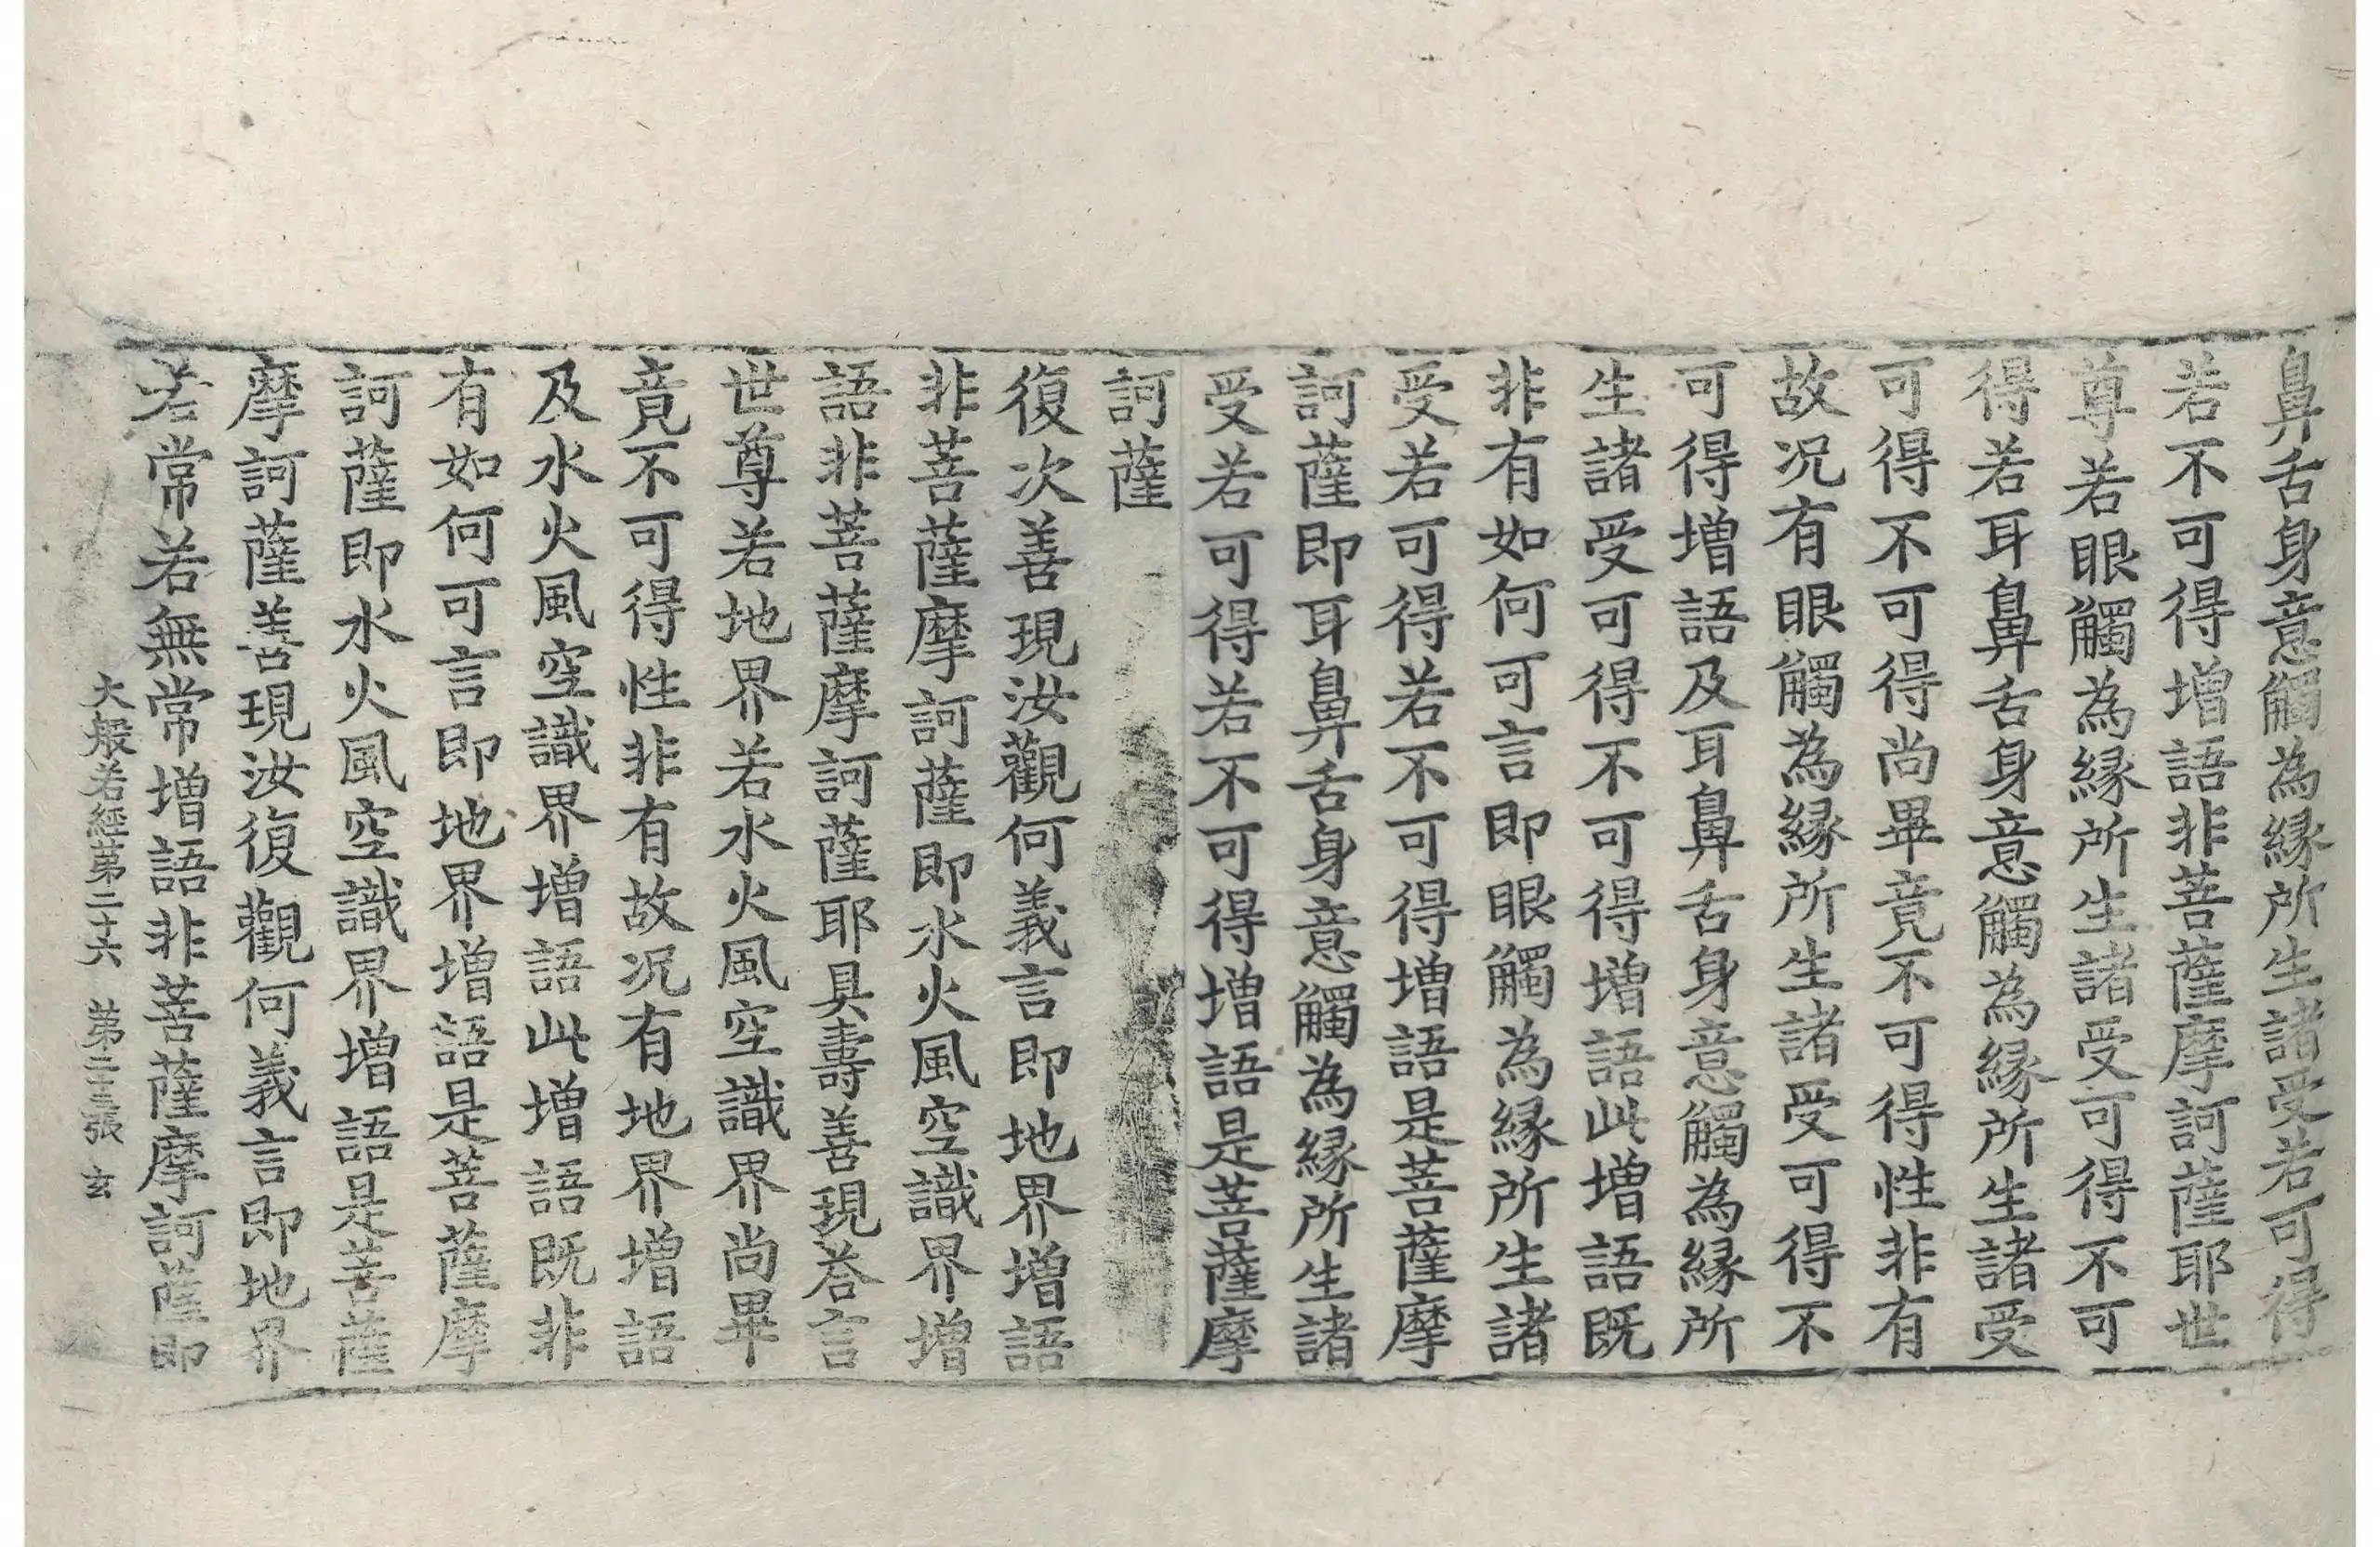 鼻舌身意觸為緣所生諸受若可得
若不可得增語非菩薩摩訶薩耶世
尊若眼觸為緣所生諸受可得不可
得若耳鼻舌身意觸為緣所生諸受
可得不可得尚畢竟不可得性非有
故况有眼觸為緣所生諸受可得不
可得增語及耳鼻舌身意觸為緣所
生諸受可得不可得增語此增語既
非有如何可言即眼觸為緣所生諸
受若可得若不可得增語是菩薩摩
訶薩即耳鼻舌身意觸為緣所生諸
受若可得若不可得增語是菩薩摩
訶薩
復次善現汝觀何義言即地界增語
非菩薩摩訶薩即水火風空識界增
語非菩薩摩訶薩耶具壽善現荅言
世尊若地界若水火風空識界尚畢
竟不可得性非有故况有地界增語
及水火風空識界增語此增語既非
有如何可言即地界增語是菩薩摩
訶薩即水火風空識界增語是菩薩
摩訶薩善現汝復觀何義言即地界
若常若無常增語非菩薩摩訶薩即
大般若經第二十六 第二十三張 玄